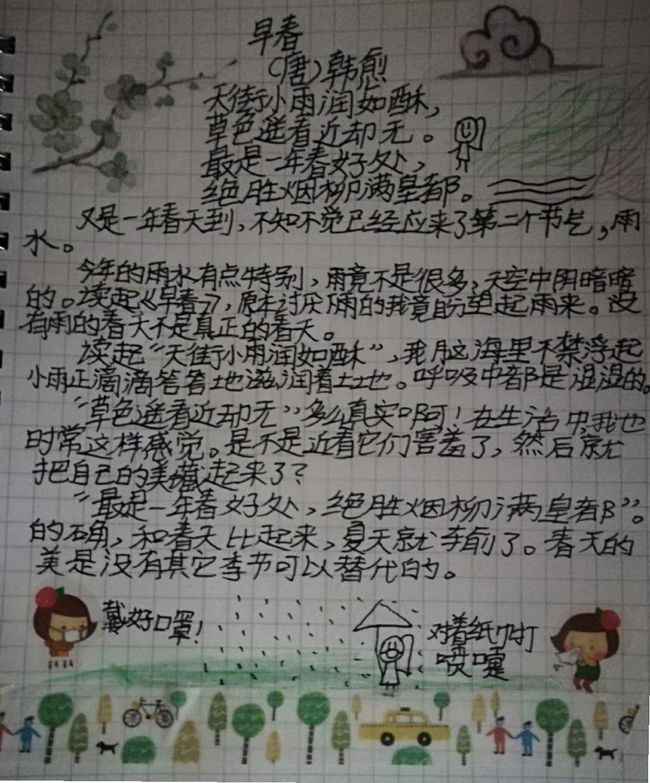 早春
(唐)韩愈
天街小雨润如酥,
草色遥看近却无。
最是一年春好处,
绝胜烟柳满皇都。
又是一年春天到,不知不觉已经应来了第二个节气,雨
水。
今年的雨水有点特别,雨竟不是很多,天空中阴暗暗
的。读起《早春》,原本讨厌雨的我竟盼望起雨来。没
有雨的春天不是真正的春天。
读起“天街小雨润如酥”,我脑海里不禁浮起
小雨正滴滴答答地滋润着土地。呼吸中都是湿湿的。
“草色遥看近却无”多么真实啊!在生活中,我也
时常这样感觉。是不是近看它们害羞了,然后就
把自己的美藏起来了?
“最是一年春好处,绝胜烟柳满皇都”。
的确,和春天比起来,夏天就逊了。春天的
美是没有其它季节可以替代的。
戴好口罩!
对着纸巾打
喷嚏